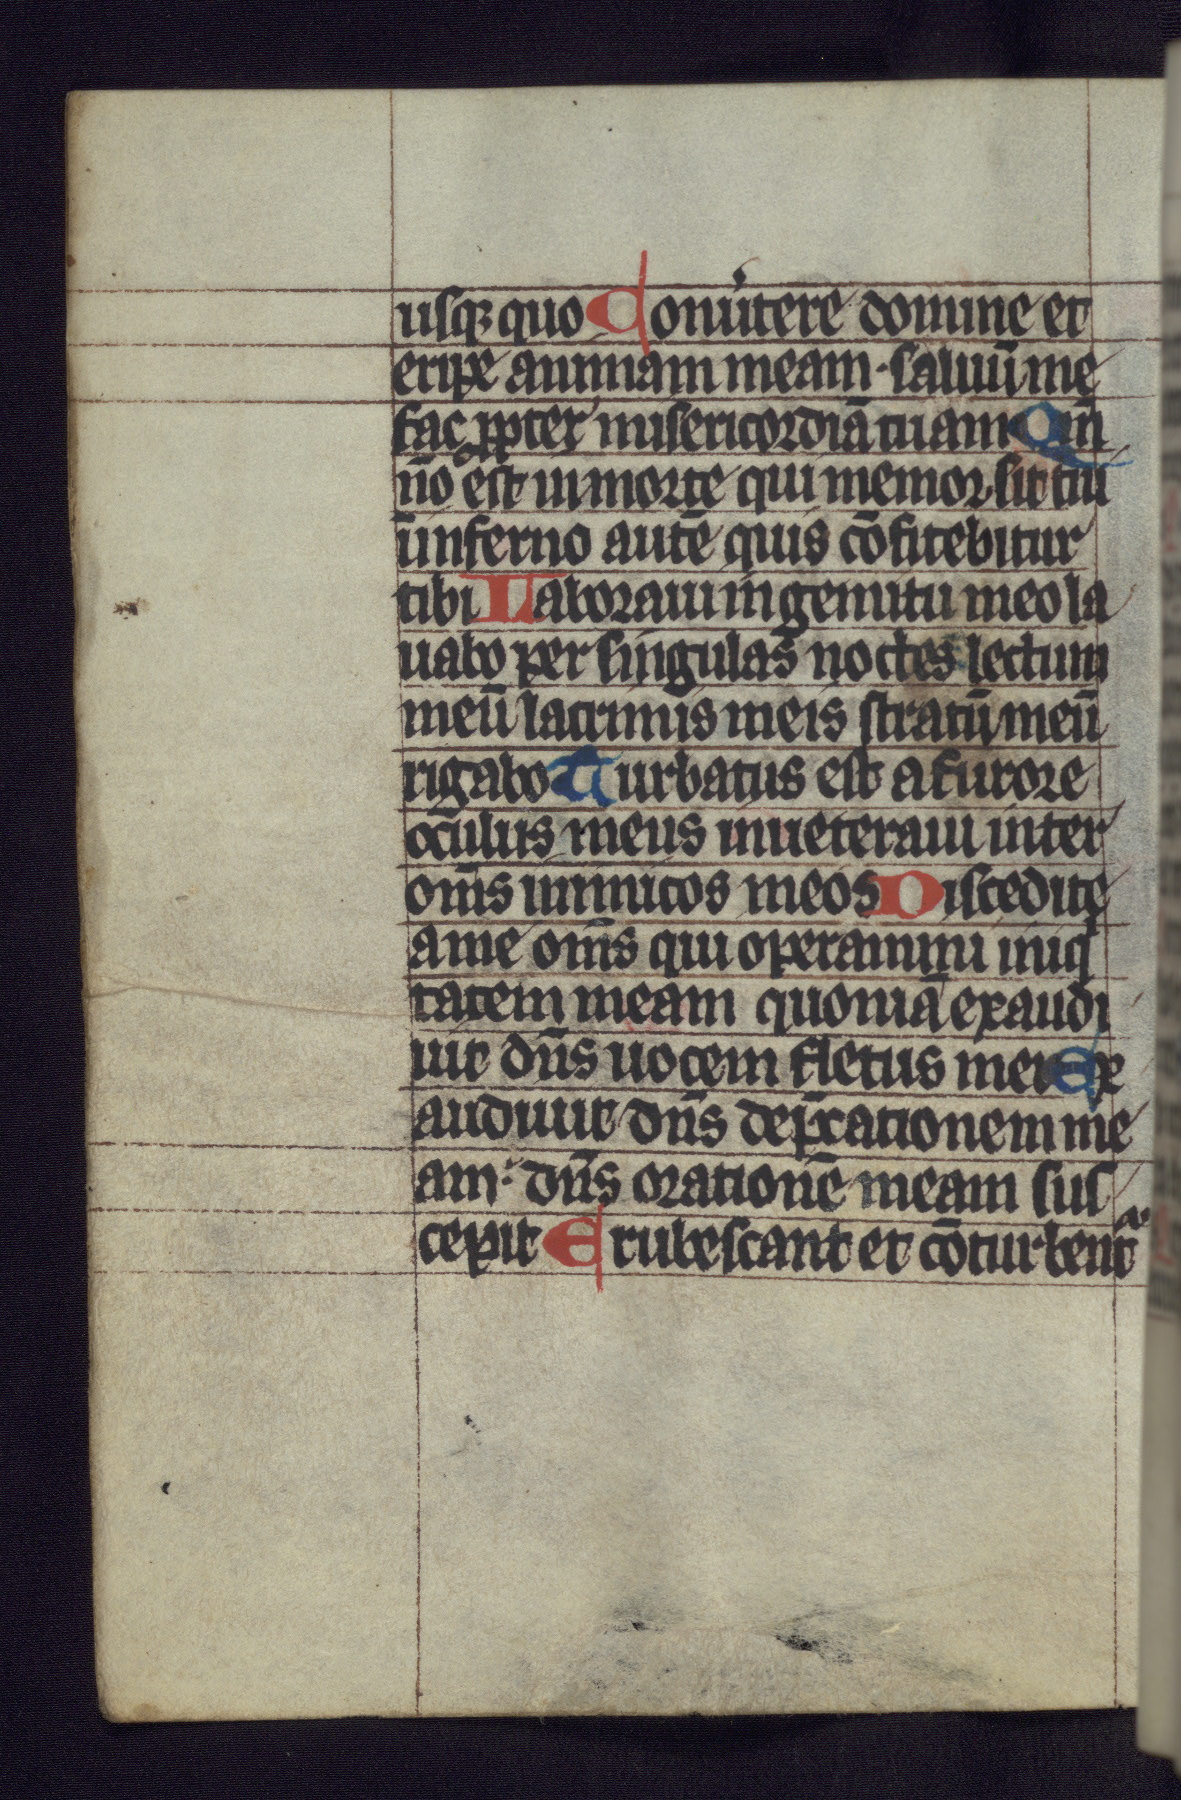 usq; quo Conu̾tere domine et
eripe animam meam · saluū me
fac ꝓpter misericordiā tuam Qm̄
nō est in morte qui memor sit tui
ī inferno autē quis cōfitebitur
tibi Laboraui in gemitu meo la
uabo per singulas noctes lectum
meū lacrimis meis stratū meū
rigabo Turbatus est a furore
oculus meus inueteraui inter
om̄s inimicos meos Discedite
a me om̄s qui operamini iniq
tatem meam quoniā exaudi
uit dn̄s uocem fletus mei Ex
audiuit dn̄s dep̄cationem me
am · dn̄s orationē meam sus
cepit Erubescant et cōturbent᷑